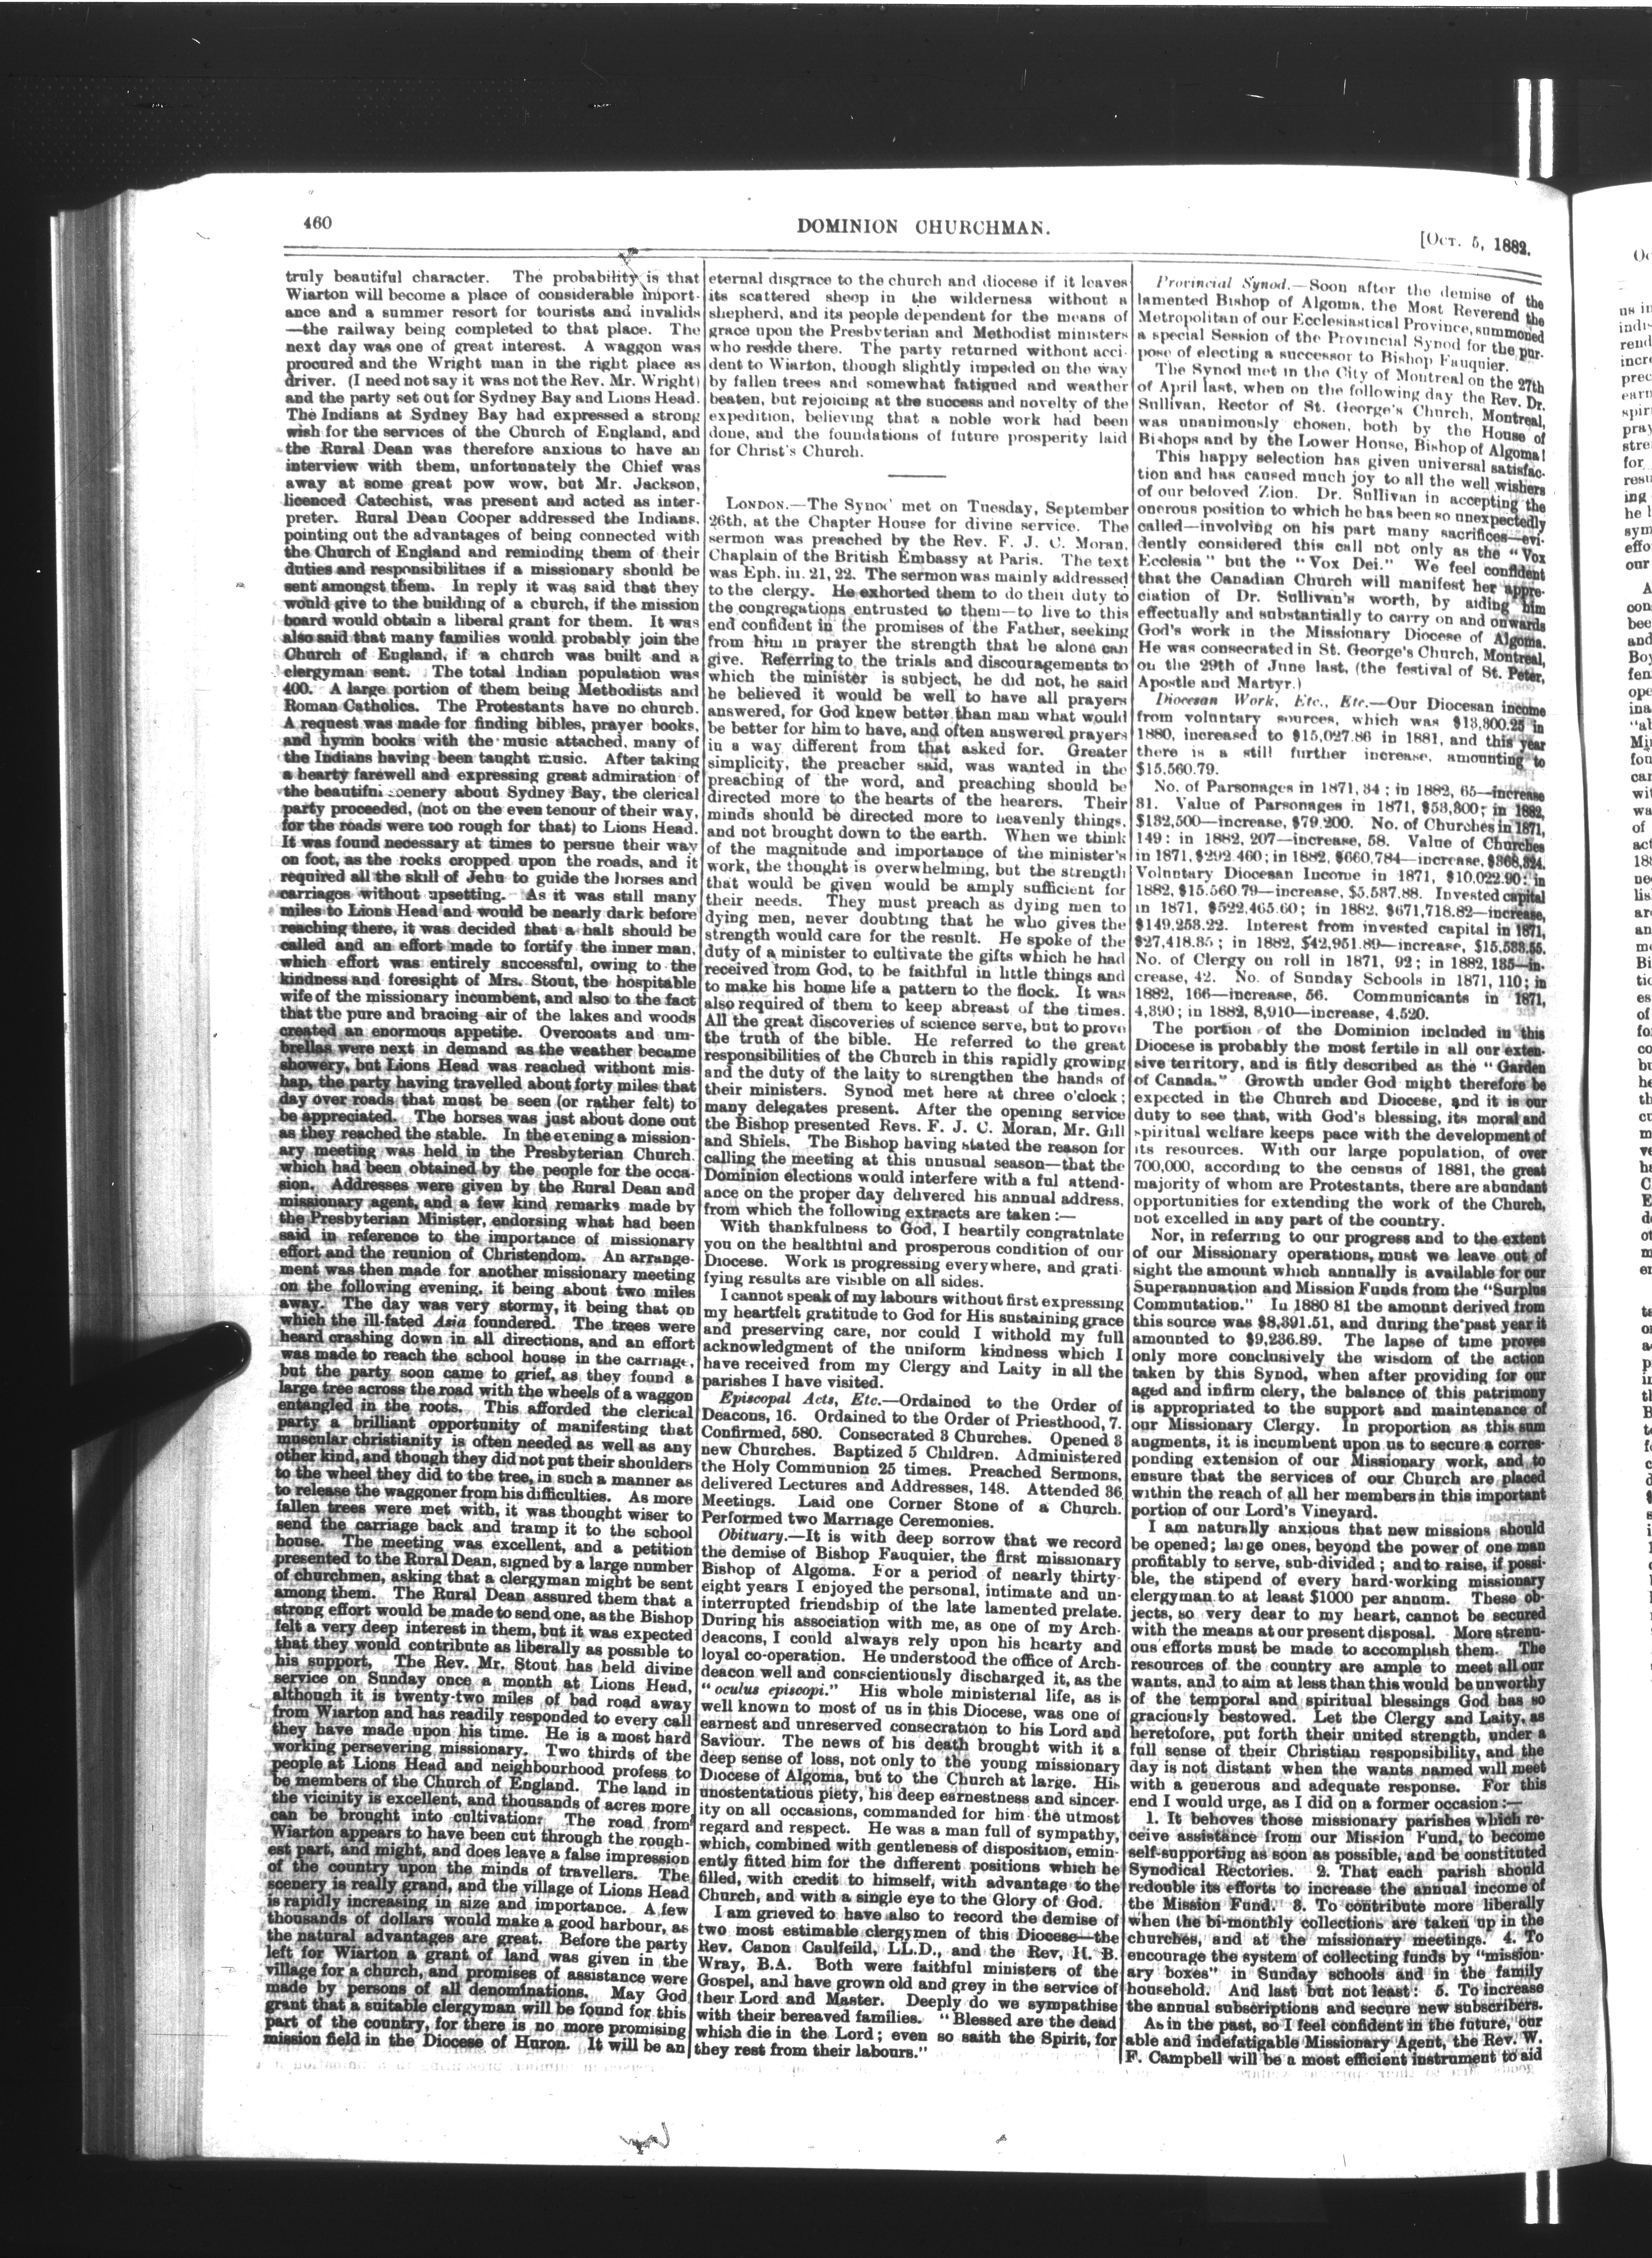 460
DOMINION CHURCHMAN.
[Oct. 5, 1882.
truly beautiful character. The probability is that
Wiarton will become a place of considerable import-
ance and a summer resort for tourists and invalids
—the railway being completed to that place. The
next day was one of great interest. A waggon was
procured and the Wright man in the right place as
driver. (I need not say it was not the Rev. Mr. Wright)
and the party set out for Sydney Bay and Lions Head.
The Indians at Sydney Bay had expressed a strong
wish for the services of the Church of England, and
the Rural Dean was therefore anxious to have an
interview with them, unfortunately the Chief was
away at some great pow wow, but Mr. Jackson,
licenced Catechist, was present and acted as inter-
preter. Rural Dean Cooper addressed the Indians,
pointing out the advantages of being connected with
the Church of England and reminding them of their
duties and responsibilities if a missionary should be
sent amongst them. In reply it was said that they
would give to the building of a church, if the mission
board would obtain a liberal grant for them. It was
also said that many families would probably join the
Church of England, if a church was built and a
clergyman sent. The total Indian population was
400. A large portion of them being Methodists and
Roman Catholics. The Protestants have no church.
A request was made for finding bibles, prayer books,
and hymn books with the music attached, many of
the Indians having been taught music. After taking
a hearty farewell and expressing great admiration of
the beautiful scenery about Sydney Bay, the clerical
party proceeded, (not on the even tenour of their way,
for the roads were too rough for that) to Lions Head.
It was found necessary at times to persue their way
on foot, as the rocks cropped upon the roads, and it
required all the skill of Jehu to guide the horses and
carriages without upsetting. As it was still many
miles to Lions Head and would be nearly dark before
reaching there, it was decided that a halt should be
called and an effort made to fortify the inner man,
which effort was entirely successful, owing to the
kindness and foresight of Mrs. Stout, the hospitable
wife of the missionary incumbent, and also to the fact
that the pure and bracing air of the lakes and woods
created an enormous appetite. Overcoats and um-
brellas were next in demand as the weather became
showery, but Lions Head was reached without mis-
hap, the party having travelled about forty miles that
day over roads that must be seen (or rather felt) to
be appreciated. The horses was just about done out
as they reached the stable. In the evening a mission-
ary meeting was held in the Presbyterian Church.
which had been obtained by the people for the occa-
sion. Addresses were given by the Rural Dean and
missionary agent, and a few kind remarks made by
the Presbyterian Minister, endorsing what had been
said in reference to the importance of missionary
effort and the reunion of Christendom. An arrange-
ment was then made for another missionary meeting
on the following evening, it being about two miles
away. The day was very stormy, it being that on
which the ill-fated Asia foundered. The trees were
heard crashing down in all directions, and an effort
was made to reach the school house in the carriage,
but the party soon came to grief, as they found a
large tree across the road with the wheels of a waggon
entangled in the roots. This afforded the clerical
party a brilliant opportunity of manifesting that
muscular christianity is often needed as well as any
other kind, and though they did not put their shoulders
to the wheel they did to the tree, in such a manner as
to release the waggoner from his difficulties. As more
fallen trees were met with, it was thought wiser to
send the carriage back and tramp it to the school
house. The meeting was excellent, and a petition
presented to the Rural Dean, signed by a large number
of churchmen, asking that a clergyman might be sent
among them. The Rural Dean assured them that a
strong effort would be made to send one, as the Bishop
felt a very deep interest in them, but it was expected
that they would contribute as liberally as possible to
his support, The Rev. Mr. Stout has held divine
service on Sunday once a month at Lions Head,
although it is twenty-two miles of bad road away
from Wiarton and has readily responded to every call
they have made upon his time. He is a most hard
working persevering missionary. Two thirds of the
people at Lions Head and neighbourhood profess to
be members of the Church of England. The land in
the vicinity is excellent, and thousands of acres more
can be brought into cultivation. The road from
Wiarton appears to have been cut through the rough-
est part, and might, and does leave a false impression
of the country upon the minds of travellers. The
scenery is really grand, and the village of Lions Head
is rapidly increasing in size and importance. A few
thousands of dollars would make a good harbour, as
the natural advantages are great. Before the party
left for Wiarton a grant of land was given in the
village for a church, and promises of assistance were
made by persons of all denominations. May God
grant that a suitable clergyman will be found for this
part of the country, for there is no more promising
mission field in the Diocese of Huron. It will be an
eternal disgrace to the church and diocese if it leaves
its scattered sheep in the wilderness without a
shepherd, and its people dependent for the means of
grace upon the Presbyterian and Methodist ministers
who reside there. The party returned without acci-
dent to Wiarton, though slightly impeded on the way
by fallen trees and somewhat fatigued and weather
beaten, but rejoicing at the success and novelty of the
expedition, believing that a noble work had been
done, and the foundations of future prosperity laid
for Christ's Church.
LONDON.—The Synod met on Tuesday, September
26th, at the Chapter House for divine service. The
sermon was preached by the Rev. F. J. C. Moran,
Chaplain of the British Embassy at Paris. The text
was Eph. iii. 21, 22. The sermon was mainly addressed
to the clergy. He exhorted them to do their duty to
the congregations entrusted to them—to live to this
end confident in the promises of the Father, seeking
from him in prayer the strength that he alone can
give. Referring to the trials and discouragements to
which the minister is subject, he did not, he said
he believed it would be well to have all prayers
answered, for God knew better than man what would
be better for him to have, and often answered prayers
in a way different from that asked for. Greater
simplicity, the preacher said, was wanted in the
preaching of the word, and preaching should be
directed more to the hearts of the hearers. Their
minds should be directed more to heavenly things,
and not brought down to the earth. When we think
of the magnitude and importance of the minister's
work, the thought is overwhelming, but the strength
that would be given would be amply sufficient for
their needs. They must preach as dying men to
dying men, never doubting that he who gives the
strength would care for the result. He spoke of the
duty of a minister to cultivate the gifts which he had
received from God, to be faithful in little things and
to make his home life a pattern to the flock. It was
also required of them to keep abreast of the times.
All the great discoveries of science serve, but to prove
the truth of the bible. He referred to the great
responsibilities of the Church in this rapidly growing
and the duty of the laity to strengthen the hands of
their ministers. Synod met here at three o'clock;
many delegates present. After the opening service
the Bishop presented Revs. F. J. C. Moran, Mr. Gill
and Shiels. The Bishop having stated the reason for
calling the meeting at this unusual season—that the
Dominion elections would interfere with a ful attend-
ance on the proper day delivered his annual address,
from which the following extracts are taken:—
With thankfulness to God, I heartily congratulate
you on the healthful and prosperous condition of our
Diocese. Work is progressing everywhere, and grati-
fying results are visible on all sides.
I cannot speak of my labours without first expressing
my heartfelt gratitude to God for His sustaining grace
and preserving care, nor could I withold my full
acknowledgment of the uniform kindness which I
have received from my Clergy and Laity in all the
parishes I have visited.
Episcopal Acts, Etc.—Ordained to the Order of
Deacons, 16. Ordained to the Order of Priesthood, 7.
Confirmed, 580. Consecrated 3 Churches. Opened 3
new Churches. Baptized 5 Children. Administered
the Holy Communion 25 times. Preached Sermons,
delivered Lectures and Addresses, 148. Attended 36
Meetings. Laid one Corner Stone of a Church.
Performed two Marriage Ceremonies.
Obituary.—It is with deep sorrow that we record
the demise of Bishop Fauquier, the first missionary
Bishop of Algoma. For a period of nearly thirty-
eight years I enjoyed the personal, intimate and un-
interrupted friendship of the late lamented prelate.
During his association with me, as one of my Arch-
deacons, I could always rely upon his hearty and
loyal co-operation. He understood the office of Arch-
deacon well and conscientiously discharged it, as the
"oculus episcopi." His whole ministerial life, as is
well known to most of us in this Diocese, was one of
earnest and unreserved consecration to his Lord and
Saviour. The news of his death brought with it a
deep sense of loss, not only to the young missionary
Diocese of Algoma, but to the Church at large. His
unostentatious piety, his deep earnestness and sincer-
ity on all occasions, commanded for him the utmost
regard and respect. He was a man full of sympathy,
which, combined with gentleness of disposition, emin-
ently fitted him for the different positions which he
filled, with credit to himself, with advantage to the
Church, and with a single eye to the Glory of God.
I am grieved to have also to record the demise of
two most estimable clergymen of this Diocese—the
Rev. Canon Caulfeild, LL.D., and the Rev, H. B.
Wray, B.A. Both were faithful ministers of the
Gospel, and have grown old and grey in the service of
their Lord and Master. Deeply do we sympathise
with their bereaved families. "Blessed are the dead
which die in the Lord; even so saith the Spirit, for
they rest from their labours."
Provincial Synod.—Soon after the demise of the
lamented Bishop of Algoma, the Most Reverend the
Metropolitan of our Ecclesiastical Province, summoned
a special Session of the Provincial Synod for the pur-
pose of electing a successor to Bishop Fauquier.
The Synod met in the City of Montreal on the 27th
of April last, when on the following day the Rev. Dr.
Sullivan, Rector of St. George's Church, Montreal,
was unanimously chosen, both by the House of
Bishops and by the Lower House, Bishop of Algoma!
This happy selection has given universal satisfac-
tion and has caused much joy to all the well wishers
of our beloved Zion. Dr. Sullivan in accepting the
onerous position to which he has been so unexpectedly
called—involving on his part many sacrifices—evi-
dently considered this call not only as the "Vox
Ecclesia" but the "Vox Dei." We feel confident
that the Canadian Church will manifest her appre-
ciation of Dr. Sullivan's worth, by aiding him
effectually and substantially to carry on and onwards
God's work in the Missionary Diocese of Algoma.
He was consecrated in St. George's Church, Montreal,
on the 29th of June last, (the festival of St. Peter,
Apostle and Martyr.)
Diocesan Work, Etc., Etc.—Our Diocesan income
from voluntary sources, which was $13,800.25 in
1880, increased to $15,027.86 in 1881, and this year
there is a still further increase, amounting to
$15,560.79.
No. of Parsonages in 1871, 34; in 1882, 65—increase
31. Value of Parsonages in 1871, $53,300; in 1882,
$132,500—increase, $79,200. No. of Churches in 1871,
149: in 1882, 207—increase, 58. Value of Churches
in 1871, $292.460; in 1882, $660,784—increase, $368,324.
Voluntary Diocesan Income in 1871, $10,022.90: in
1882, $15.560.79—increase, $5.537.88. Invested capital
in 1871, $522,465.60; in 1882, $671,718.82—increase,
$149,253.22. Interest from invested capital in 1871,
$27,418.35; in 1882, $42,951.89—increase, $15,533.55.
No. of Clergy on roll in 1871, 92; in 1882, 135—in-
crease, 42. No. of Sunday Schools in 1871, 110; in
1882, 166—increase, 56. Communicants in 1871,
4,390; in 1882, 8,910—increase, 4,520.
The portion of the Dominion included in this
Diocese is probably the most fertile in all our exten-
sive territory, and is fitly described as the "Garden
of Canada." Growth under God might therefore be
expected in the Church and Diocese, and it is our
duty to see that, with God's blessing, its moral and
spiritual welfare keeps pace with the development of
its resources. With our large population, of over
700,000, according to the census of 1881, the great
majority of whom are Protestants, there are abundant
opportunities for extending the work of the Church,
not excelled in any part of the country.
Nor, in referring to our progress and to the extent
of our Missionary operations, must we leave out of
sight the amount which annually is available for our
Superannuation and Mission Funds from the "Surplus
Commutation." In 1880 81 the amount derived from
this source was $8,391.51, and during the past year it
amounted to $9,236.89. The lapse of time proves
only more conclusively the wisdom of the action
taken by this Synod, when after providing for our
aged and infirm clery, the balance of this patrimony
is appropriated to the support and maintenance of
our Missionary Clergy. In proportion as this sum
augments, it is incumbent upon us to secure a corres-
ponding extension of our Missionary work, and to
ensure that the services of our Church are placed
within the reach of all her members in this important
portion of our Lord's Vineyard.
I am naturally anxious that new missions should
be opened; large ones, beyond the power of one man
profitably to serve, sub-divided; and to raise, if possi-
ble, the stipend of every hard-working missionary
clergyman to at least $1000 per annum. These ob-
jects, so very dear to my heart, cannot be secured
with the means at our present disposal. More strenu-
ous efforts must be made to accomplish them. The
resources of the country are ample to meet all our
wants, and to aim at less than this would be unworthy
of the temporal and spiritual blessings God has so
graciously bestowed. Let the Clergy and Laity, as
heretofore, put forth their united strength, under a
full sense of their Christian responsibility, and the
day is not distant when the wants named will meet
with a generous and adequate response. For this
end I would urge, as I did on a former occasion:—
1. It behoves those missionary parishes which re-
ceive assistance from our Mission Fund, to become
self-supporting as soon as possible, and be constituted
Synodical Rectories. 2. That each parish should
redouble its efforts to increase the annual income of
the Mission Fund. 3. To contribute more liberally
when the bi-monthly collections are taken up in the
churches, and at the missionary meetings. 4. To
encourage the system of collecting funds by "mission-
ary boxes" in Sunday schools and in the family
household. And last but not least: 5. To increase
the annual subscriptions and secure new subscribers.
As in the past, so I feel confident in the future, our
able and indefatigable Missionary Agent, the Rev. W.
F. Campbell will be a most efficient instrument to aid